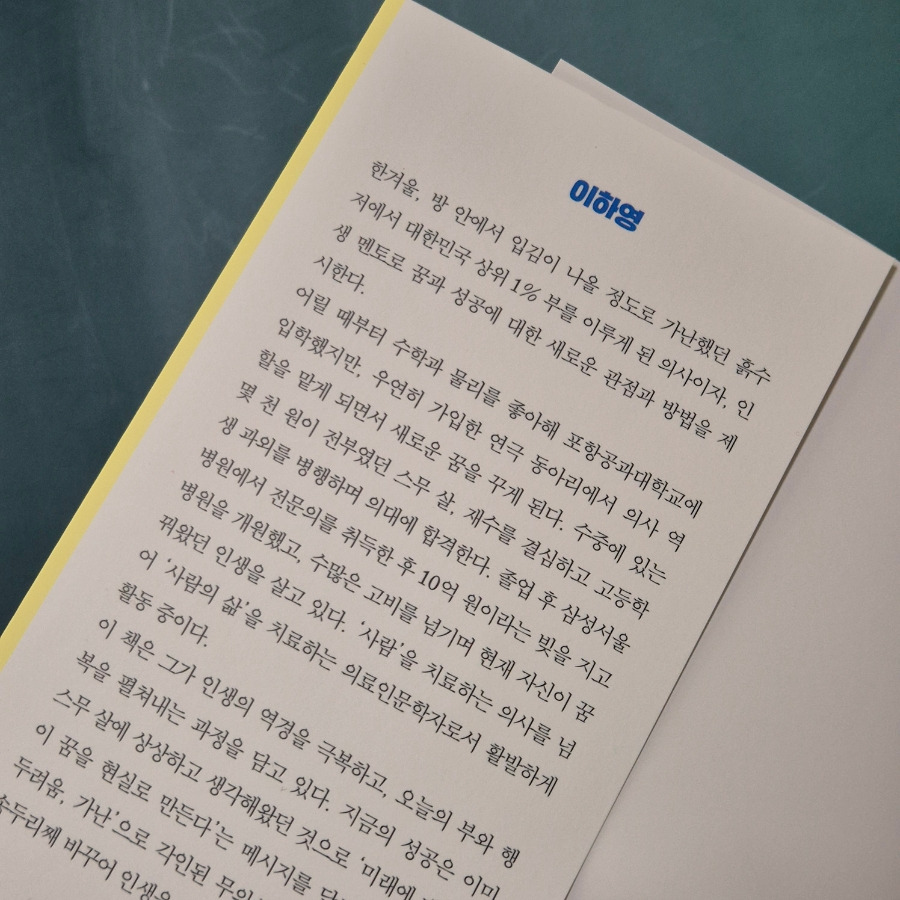 이하영
한겨울, 방 안에서 입김이 나올 정도로 가난했던 흙수
저에서 대한민국 상위 1% 부를 이루게 된 의사이자, 인
생 멘토로 꿈과 성공에 대한 새로운 관점과 방법을 제
시한다.
어릴 때부터 수학과 물리를 좋아해 포항공과대학교에
입학했지만, 우연히 가입한 연극 동아리에서 의사 역
할을 맡게 되면서 새로운 꿈을 꾸게 된다. 수중에 있는
몇 천 원이 전부였던 스무 살, 재수를 결심하고 고등학
생 과외를 병행하며 의대에 합격한다. 졸업 후 삼성서울
병원에서 전문의를 취득한 후 10억 원이라는 빚을 지고
병원을 개원했고, 수많은 고비를 넘기며 현재 자신이 꿈
꿔왔던 인생을 살고 있다. '사람'을 치료하는 의사를 넘
어 '사람의 삶'을 치료하는 의료인문학자로서 활발하게
활동 중이다.
이 책은 그가 인생의 역경을 극복하고, 오늘의 부와 행
복을 펼쳐내는 과정을 담고 있다. 지금의 성공은 이미
스무 살에 상상하고 생각해왔던 것으로 '미래에
이 꿈을 현실로 만든다'는 메시지를
두려움, 가난'으로 각인된
송두리째 바꾸어